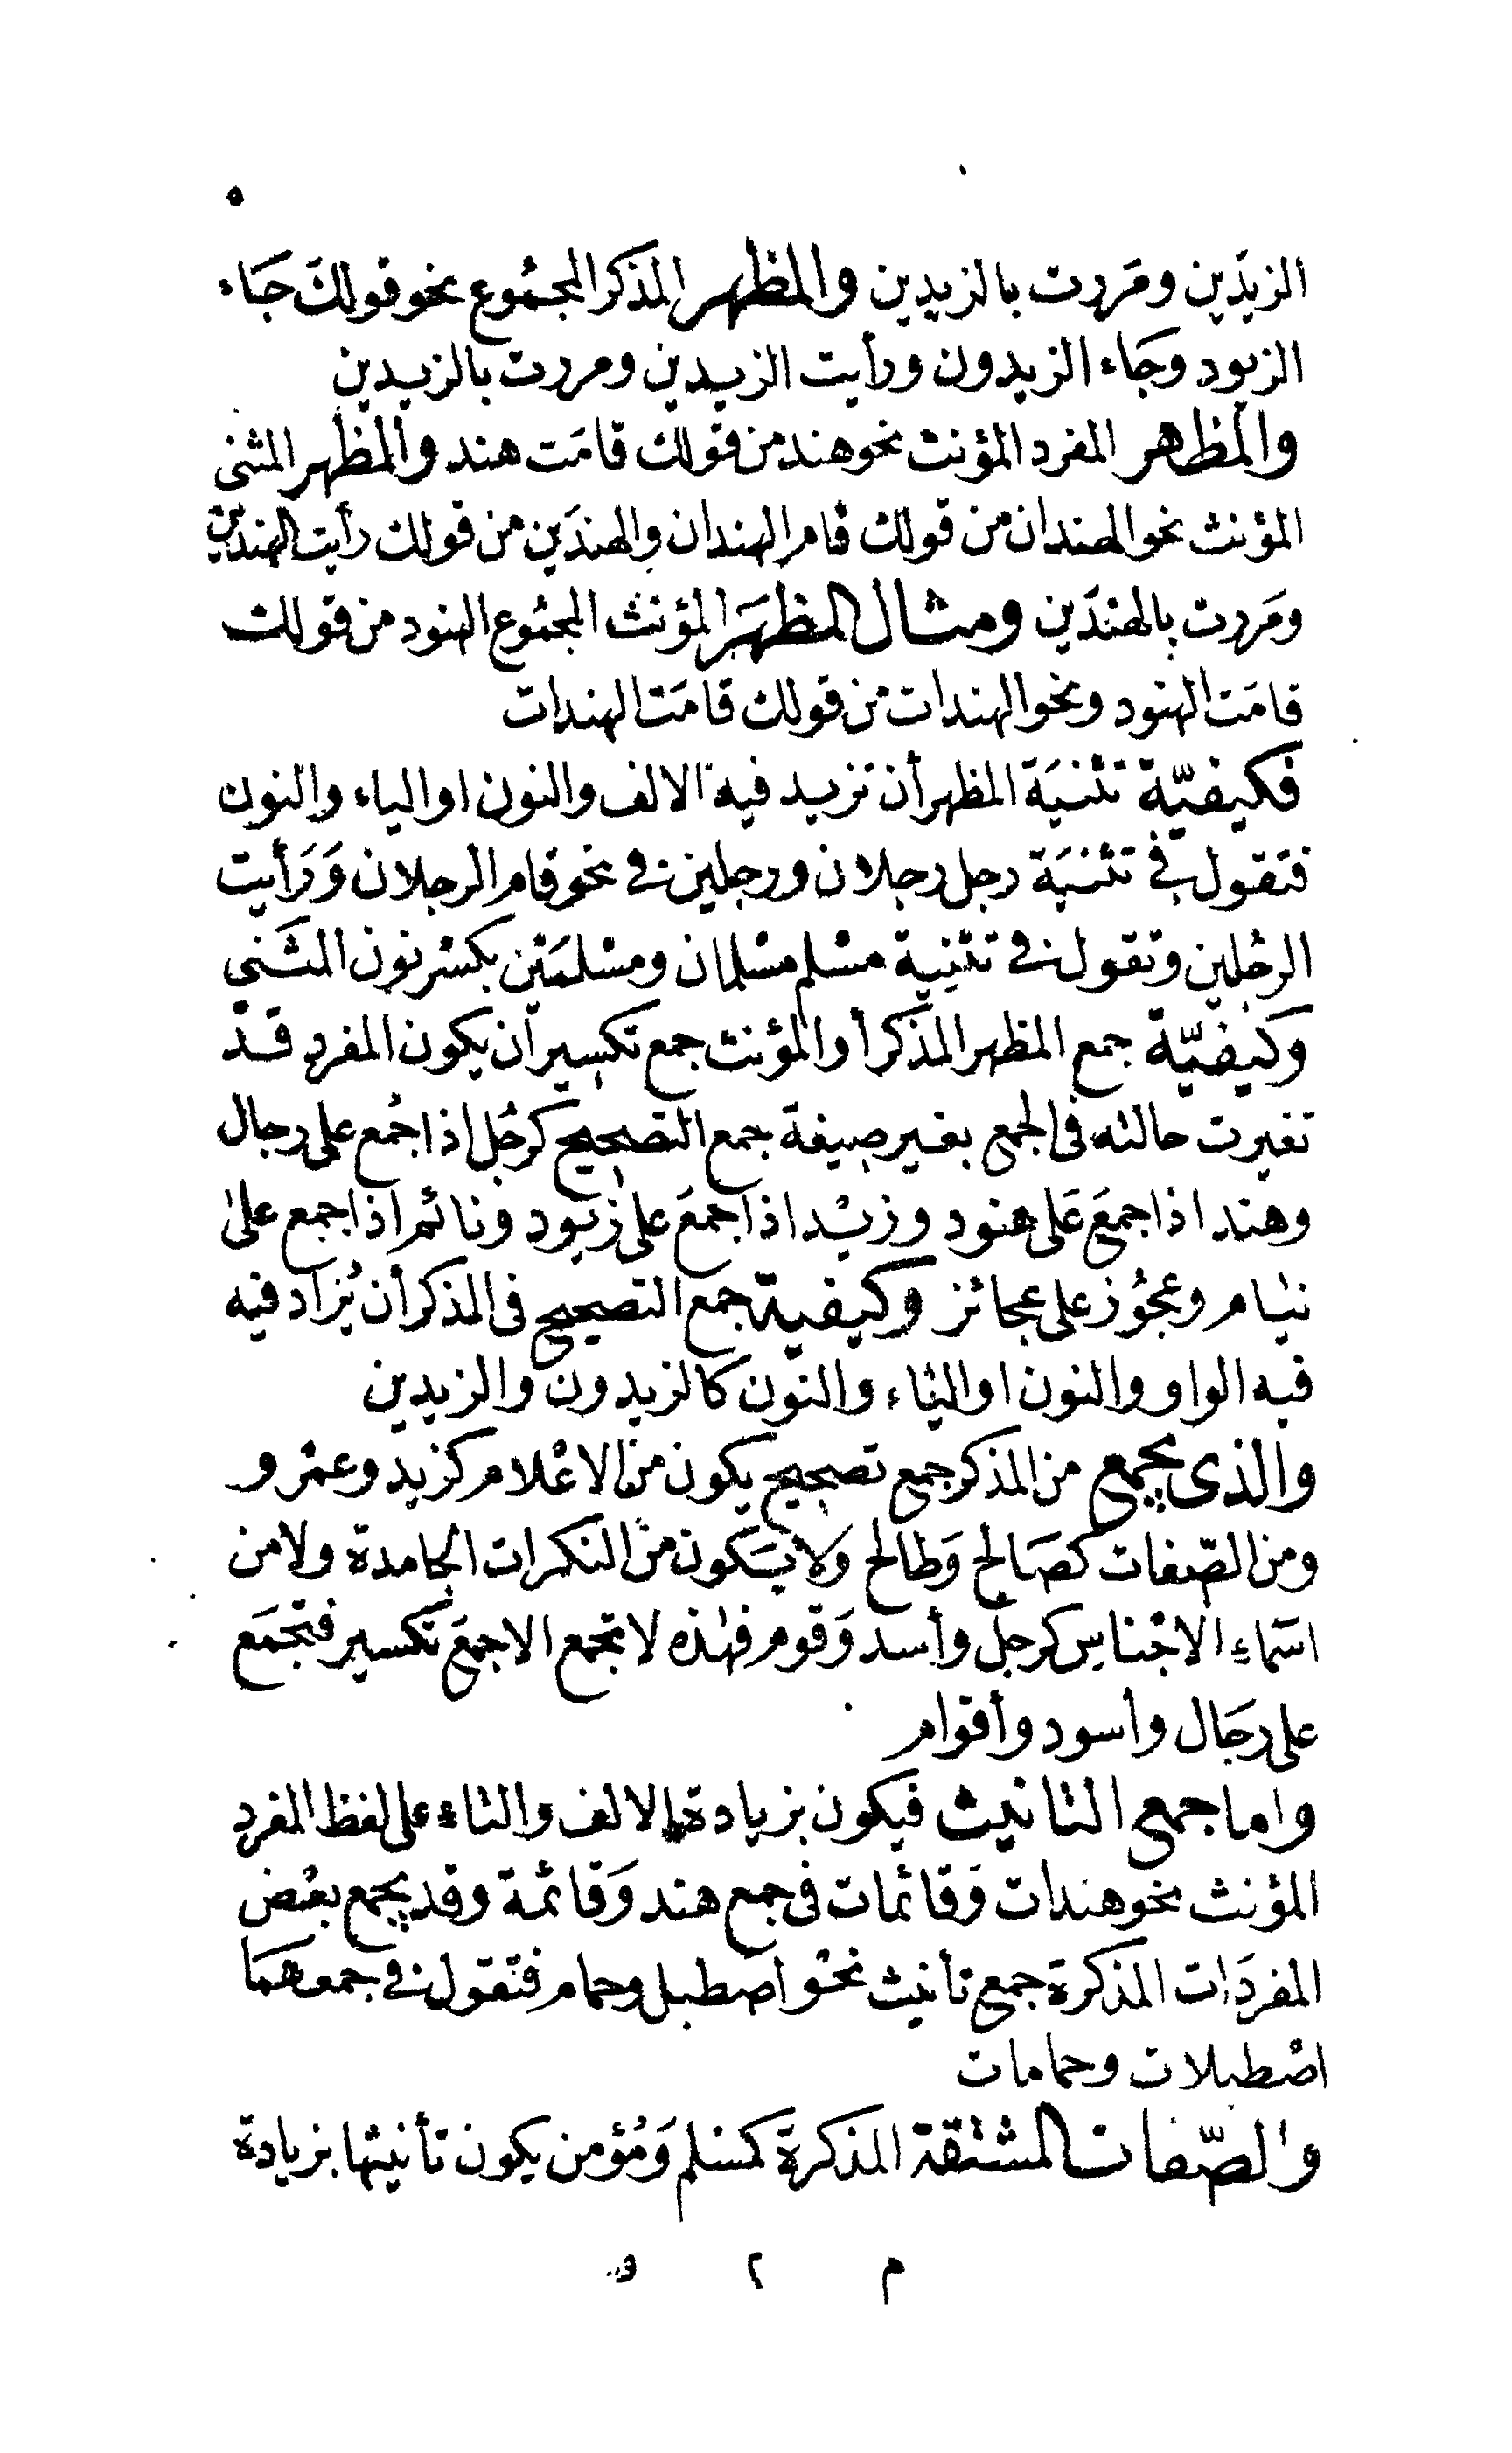 ٥
الزيدَين ومَررت بالزيدين والمظهر المذكر المجمُوع نحو قولك جَاء
الزيود وجَاء الزيدون ورأيت الزيدين ومررت بالزيدين
والمظهر المفرد المؤنث نحو هند من قولك قامَت هند والمظهر المثنى
المؤنث نحو الهندان من قولك قام الهندان والهندَين من قولك رأيت الهندين
ومَررت بالهندَين ومثال المظهَر المؤنث المجمُوع الهنود من قولك
قامَت الهنود ونحو الهندات من قولك قامَت الهندات
فكيفيّة تثنيَة المظهر أن تزيد فيه الالف والنون او الياء والنون
فتقول في تثنيَة رجل رجلان ورجلين في نحو قام الرجلان وَرَأيت
الرجُلين وتقول في تثنِية مسْلم مسْلمان ومسْلمَيْن بكسْر نون المثَنى
وكيفيّة جمع المظهر المذكر أو المؤنث جمع تكسير ان يكون المفرد قد
تغيرت حالته فى الجمع بغير صيغة جمع التصحيح كرجُل اذا جُمع على رجال
وهند اذا جمعَ عَلى هنود وزيْد اذا جمعَ على زيود ونائم اذا جمع على
نيَام وعجُوز على عجائز وكيفية جمع التصحيح فى المذكر أن يُزاد فيه
فيه الواو والنون او الياء والنون كالزيدون والزيدين
والذى يجمع من المذكر جمع تصحيح يكون من الاعْلام كزيد وعمْرو
ومن الصّفات كصَالح وَطالح وَلا يَكون منَ النكرات الجامدة ولا من
اسَماءِ الاجْناس كرجل وأسد وَقوم فهٰذه لا تجمع الا جمعَ تكسير فتجمَع
على رجَال وأسود وأقوام
واما جمع التانيث فيكون بزيادة الالف والتاء على لفظ المفرد
المؤنث نحو هندات وَقائمات فى جمع هند وَقائمة وقد يجمع بعْض
المفردَات المذكرة جمع تأنيث نحْو اصطبل وحمام فتقول في جمعهمَا
اصْطبلات وحمامات
والصّفات المشتقة المذكرة كمسْلم وَمُؤمن يكون تأنيثها بزيادة
م ٢ و